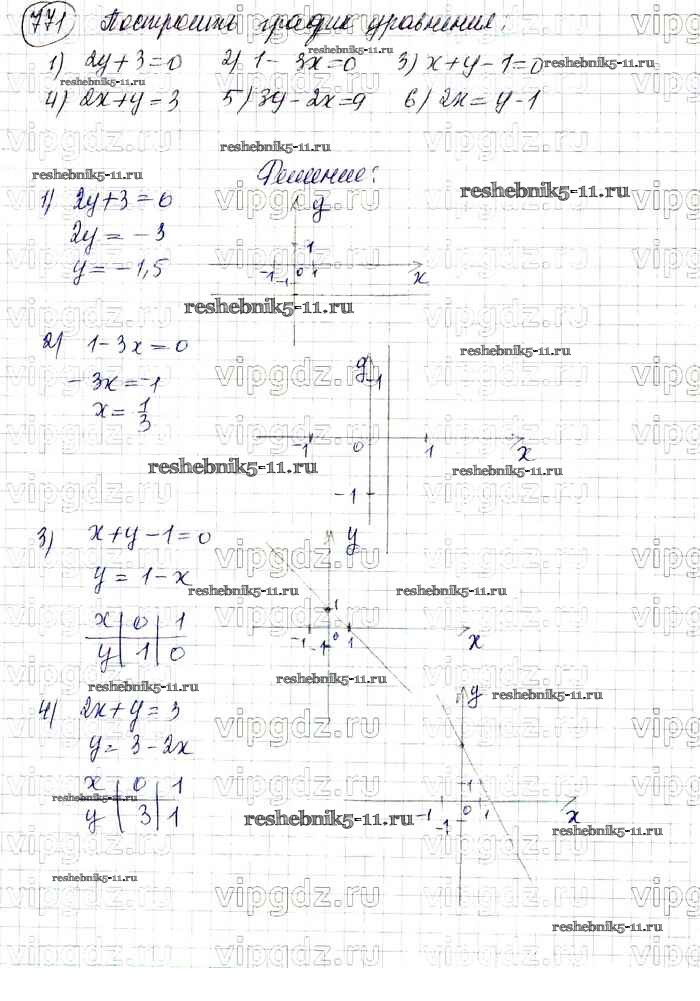 771 Построить график уравнения:
1) 2y+3=0 2) 1-3x=0 3) x+y-1=0
4) 2x+y=3 5) 3y-2x=9 6) 2x=y-1
Решение:
1) 2y+3=0
2y=-3
y=-1,5
y
1
-1 0 1
-1
x
2) 1-3x=0
-3x=-1
x=1/3
y
1
-1 0 1
x
-1
3) x+y-1=0
y=1-x
x | 0 | 1
y | 1 | 0
y
1
-1 0 1
-1
x
4) 2x+y=3
y=3-2x
x | 0 | 1
y | 3 | 1
y
1
-1 1
-1
x
reshebnik5-11.ru
vipgdz.ru